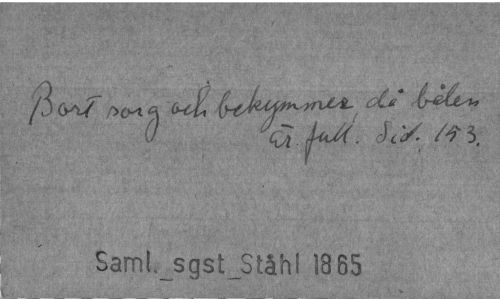 Bort sorg och bekymmer, då bålen
är full. Sid. 153.
Saml._sgst_Ståhl 1865